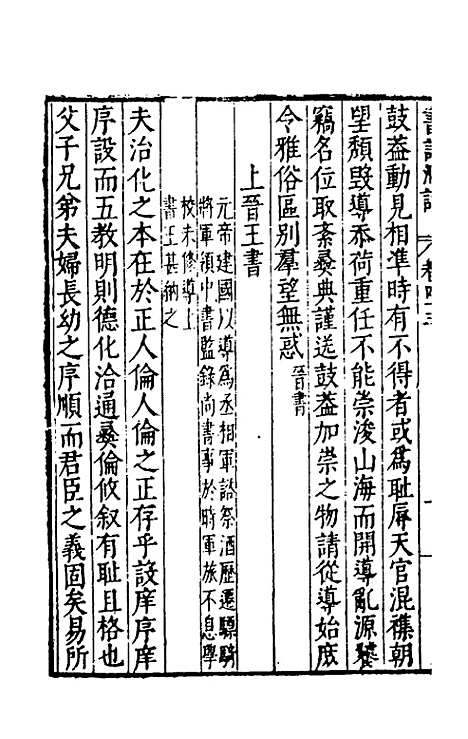 鼓蓋動見相準時有不得者或爲耻辱天官混襍朝
望頹毀導忝荷重任不能崇浚山海而開導亂源饕
竊名位取紊彝典謹送鼓蓋加崇之物請從導始庶
令雅俗區别羣望無惑晉書
上晉王書
元帝建國以導爲丞相軍諮祭酒歷遷驃騎
將軍領中書監錄尚書事於時軍旅不息學
校未修導上
書王甚納之
夫治化之本在於正人倫人倫之正存乎設庠序庠
序設而五教明則德化洽通彝倫攸叙有耻且格也
父子兄弟夫婦長幼之序順而君臣之義固矣易所